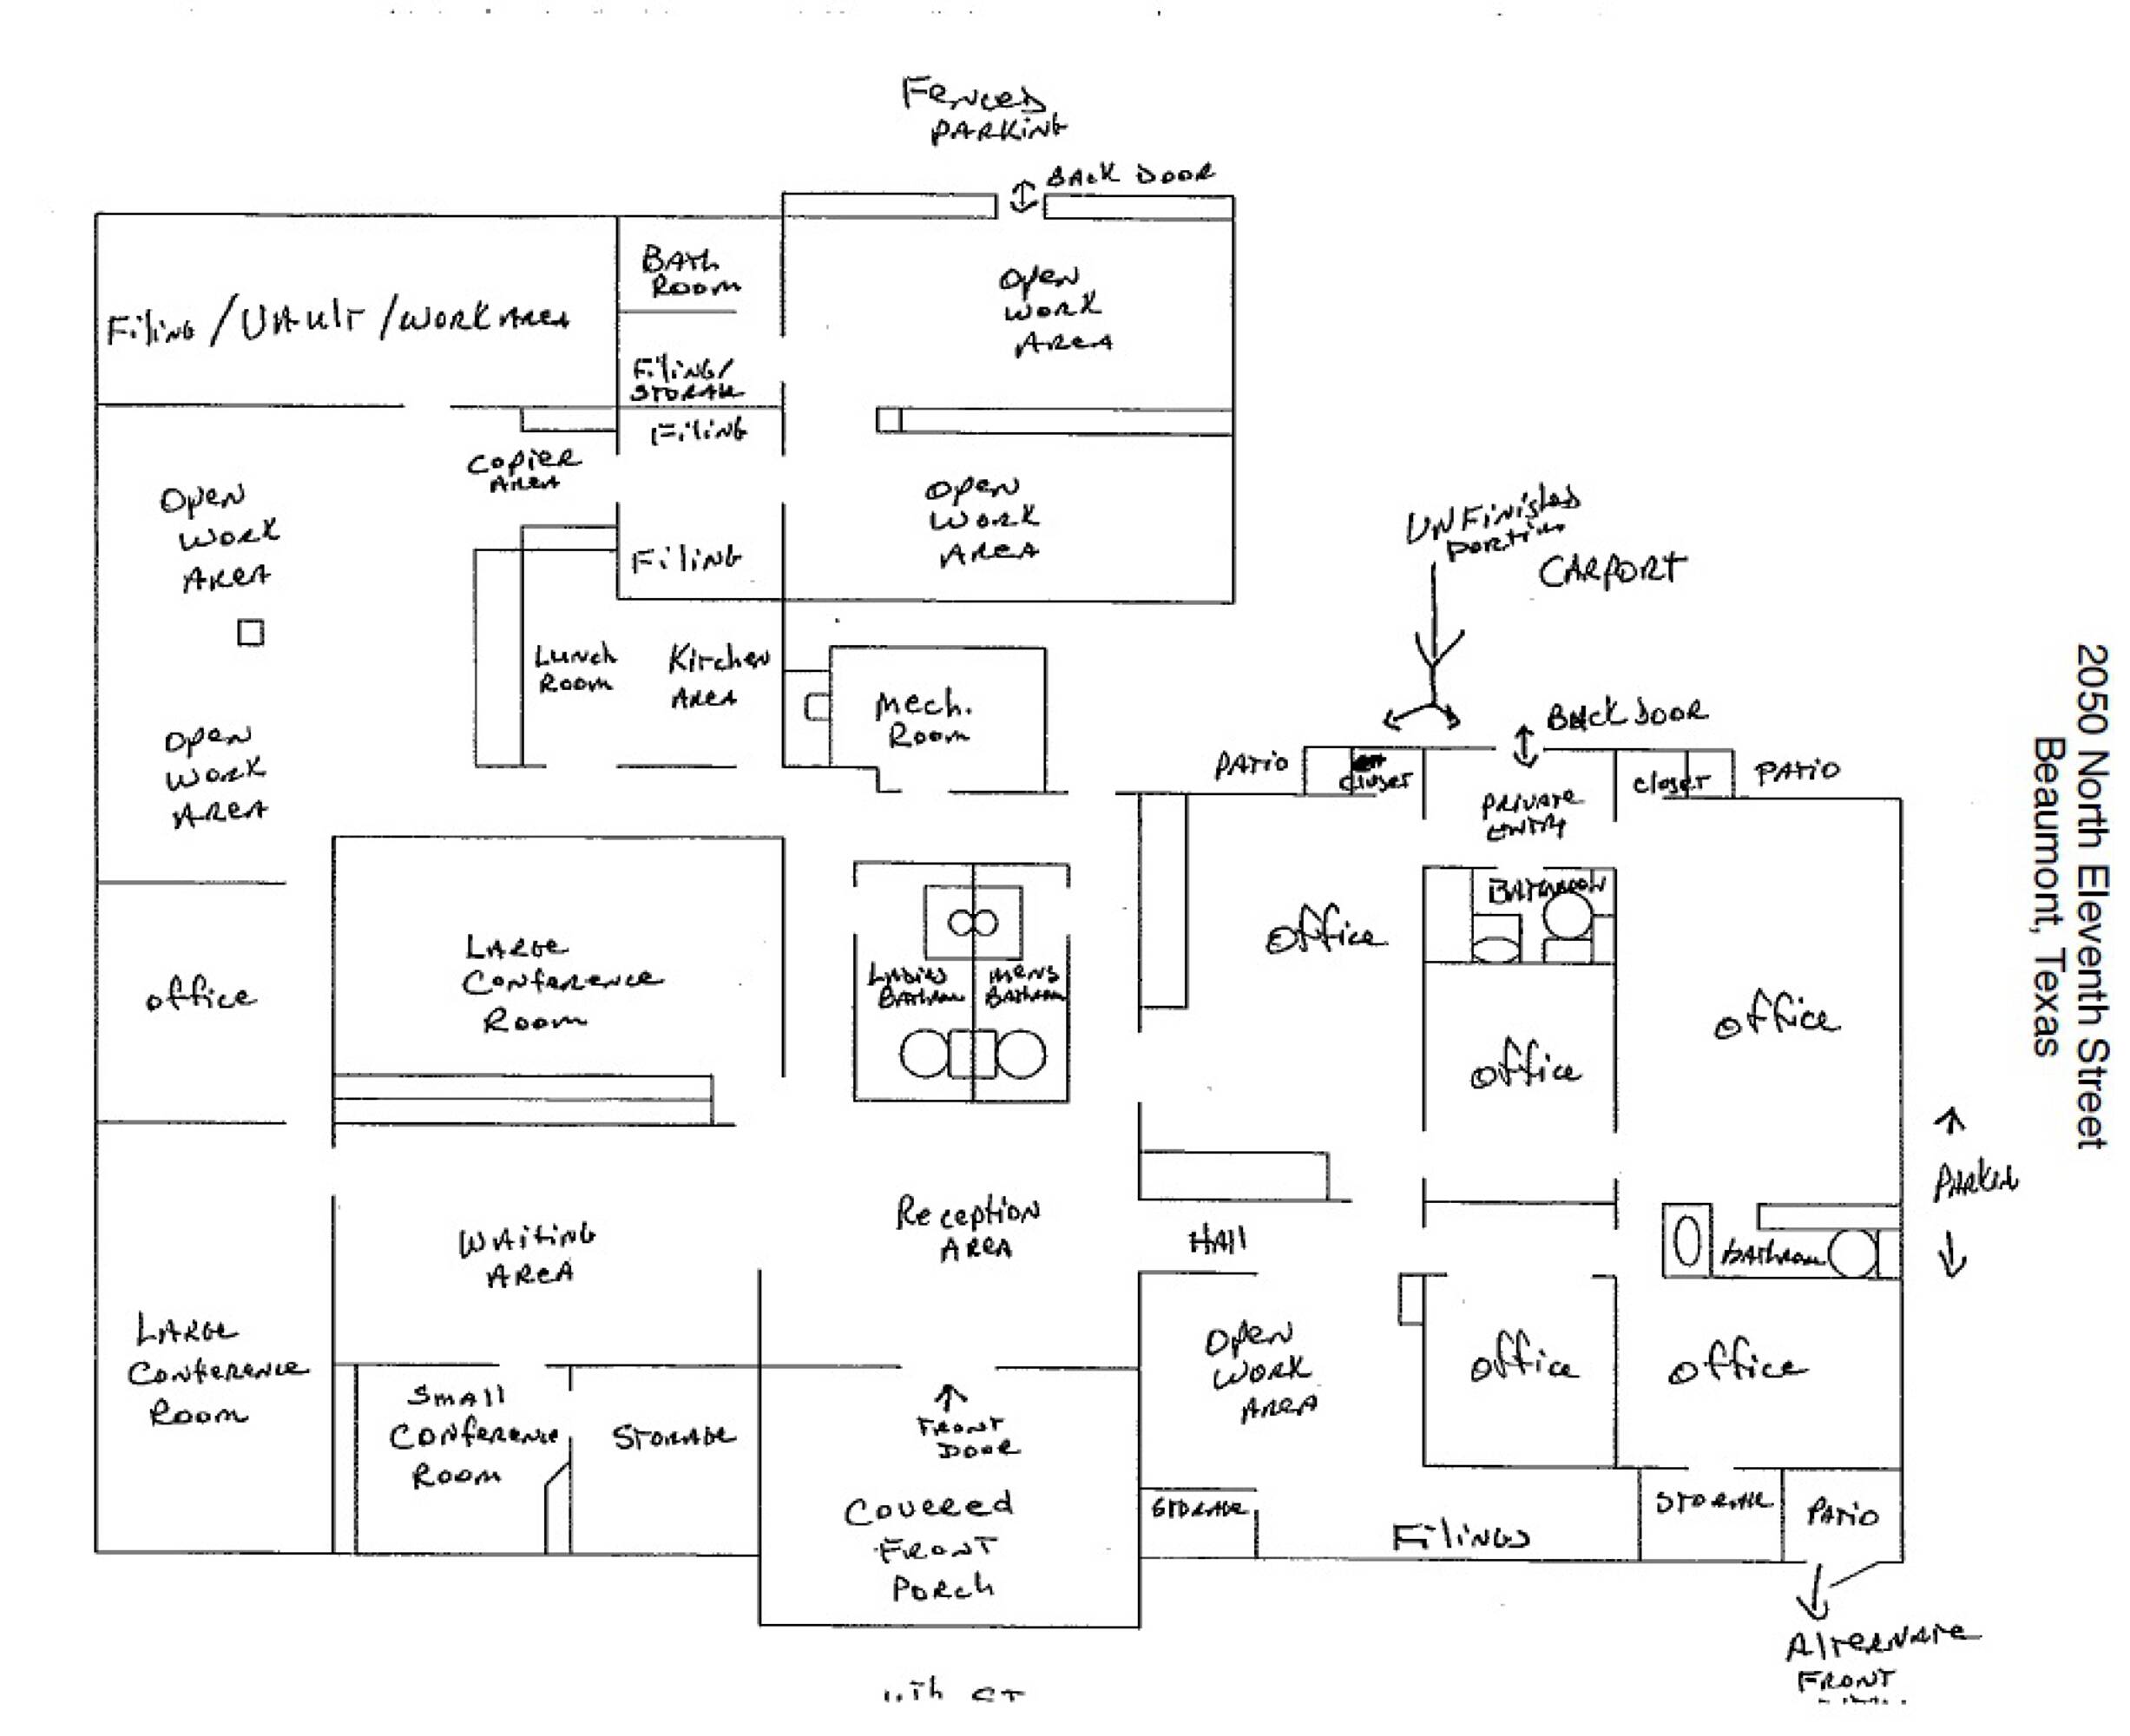 Fenced
PARKING
BACK DOOR
BATH
ROOM
Open
Work
Area
Filing / VAULT / WORK AREA
Filing/
STORAGE
Filing
Copier
Area
Open
Work
Area
Open
Work
Area
Filing
UNFinished
Portion
CARPORT
Lunch
Room
Kitchen
Area
Mech.
Room
Open
Work
Area
BACK DOOR
PATIO
Closet
Private
Entry
Closet
PATIO
2050 North Eleventh Street
Beaumont, Texas
Bathroom
Office
Large
Conference
Room
Ladies
Bathroom
Mens
Bathroom
Office
Office
Office
Parking
Reception
Area
Waiting
Area
Hall
Bathroom
Large
Conference
Room
Open
Work
Area
Office
Office
Small
Conference
Room
Storage
Front
Door
Storage
Covered
Front
Porch
Filings
Storage
PATIO
11th ST
Alternate
Front